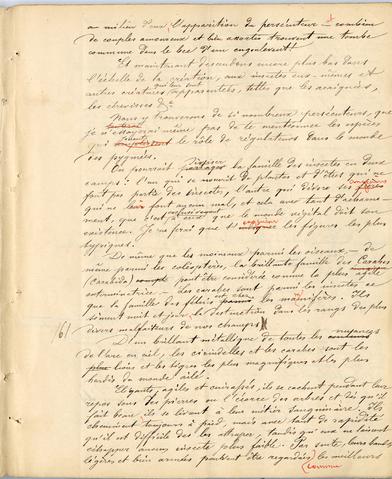 a milieu d'eux l'apparition du persécuteur — combien
de couples amoureux et bien assortis trouvent une tombe
commune dans le bec d'un engoulevent!
Et maintenant descendons encore plus bas dans
l'échelle de la création, aux insectes eux-mêmes et
autres créatures qui leur sont apparentées, telles que les araignées,
les chevisses &c
Nous y trouverons de si nombreux persécuteurs, que
je n'essayerai même pas de te mentionner les espèces
qui jouent le rôle de régulateurs dans le monde
des pygmées.
On pourrait diviser la famille des insectes en deux
camps: l'un qui se nourrit de plantes et d'êtres qui ne
font pas partie des insectes, l'autre qui dévore ses
qui ne leur font aucun mal, et cela avec tant d'acharne-
ment, que c'est à eux que le monde végétal doit son
existence. Je ne ferai que t' les figures les plus
typiques.
De même que les moineaux parmi les oiseaux, de
même parmi les coléoptères, la brillante famille des Carabes
(Carabida) peut être considérée comme la plus agile
exterminatrice. Les carabes sont parmi les insectes ce
que la famille des félins est chez les mammifères. Ils
sèment nuit et jour la destruction dans les rangs des plus
divers malfaiteurs de nos champs
161 D'un brillant métallique de toutes les nuances
de l'arc en ciel, les cicindelles et les carabes sont les
lions et les tigres les plus magnifiques et les plus
hardis du monde ailé.
Élégants, agiles et cuirassés, ils se cachent pendant leur
repos sous les pierres ou l'écorce des arbres et dès qu'il
fait brun, ils se livrent à leur métier sanguinaire. Ils
cheminent toujours à pied, mais avec tant de rapidité
qu'il est difficile de les attraper, tandis qu'eux ne laissent
échapper aucun insecte plus faible. Par suite, leurs bandes
légères et bien armées peuvent être regardées comme les meilleurs